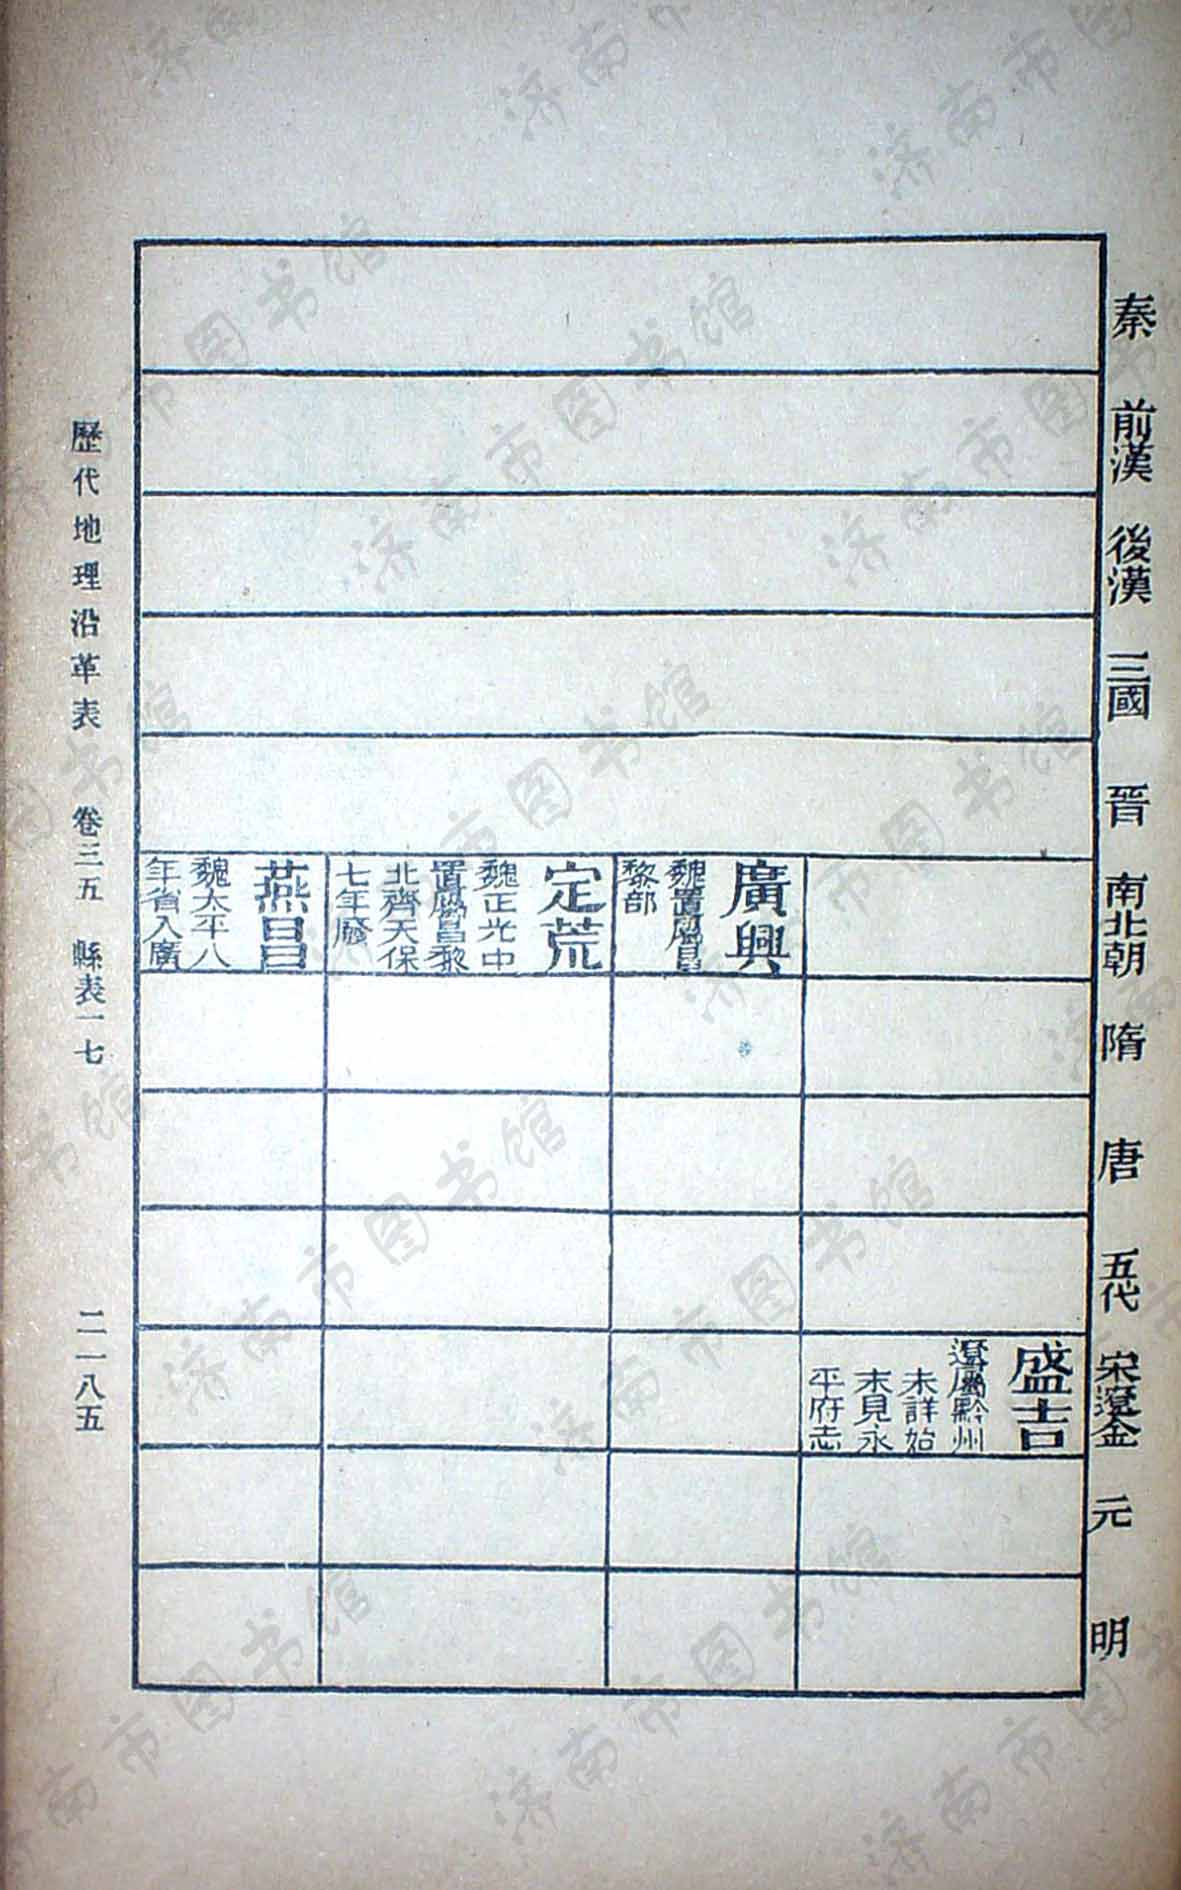 秦
前漢
後漢
三國
晉
南北朝
隋
唐
五代
宋遼金
元
明
盛吉
遼屬黔州
未詳始
末見永
平府志
廣興
魏置屬昌
黎郡
定荒
魏正光中
置屬昌黎
北齊天保
七年廢
燕昌
魏太平八
年省入廣
歷代地理沿革表 卷三五 縣表一七
二一八五
济南市图书馆